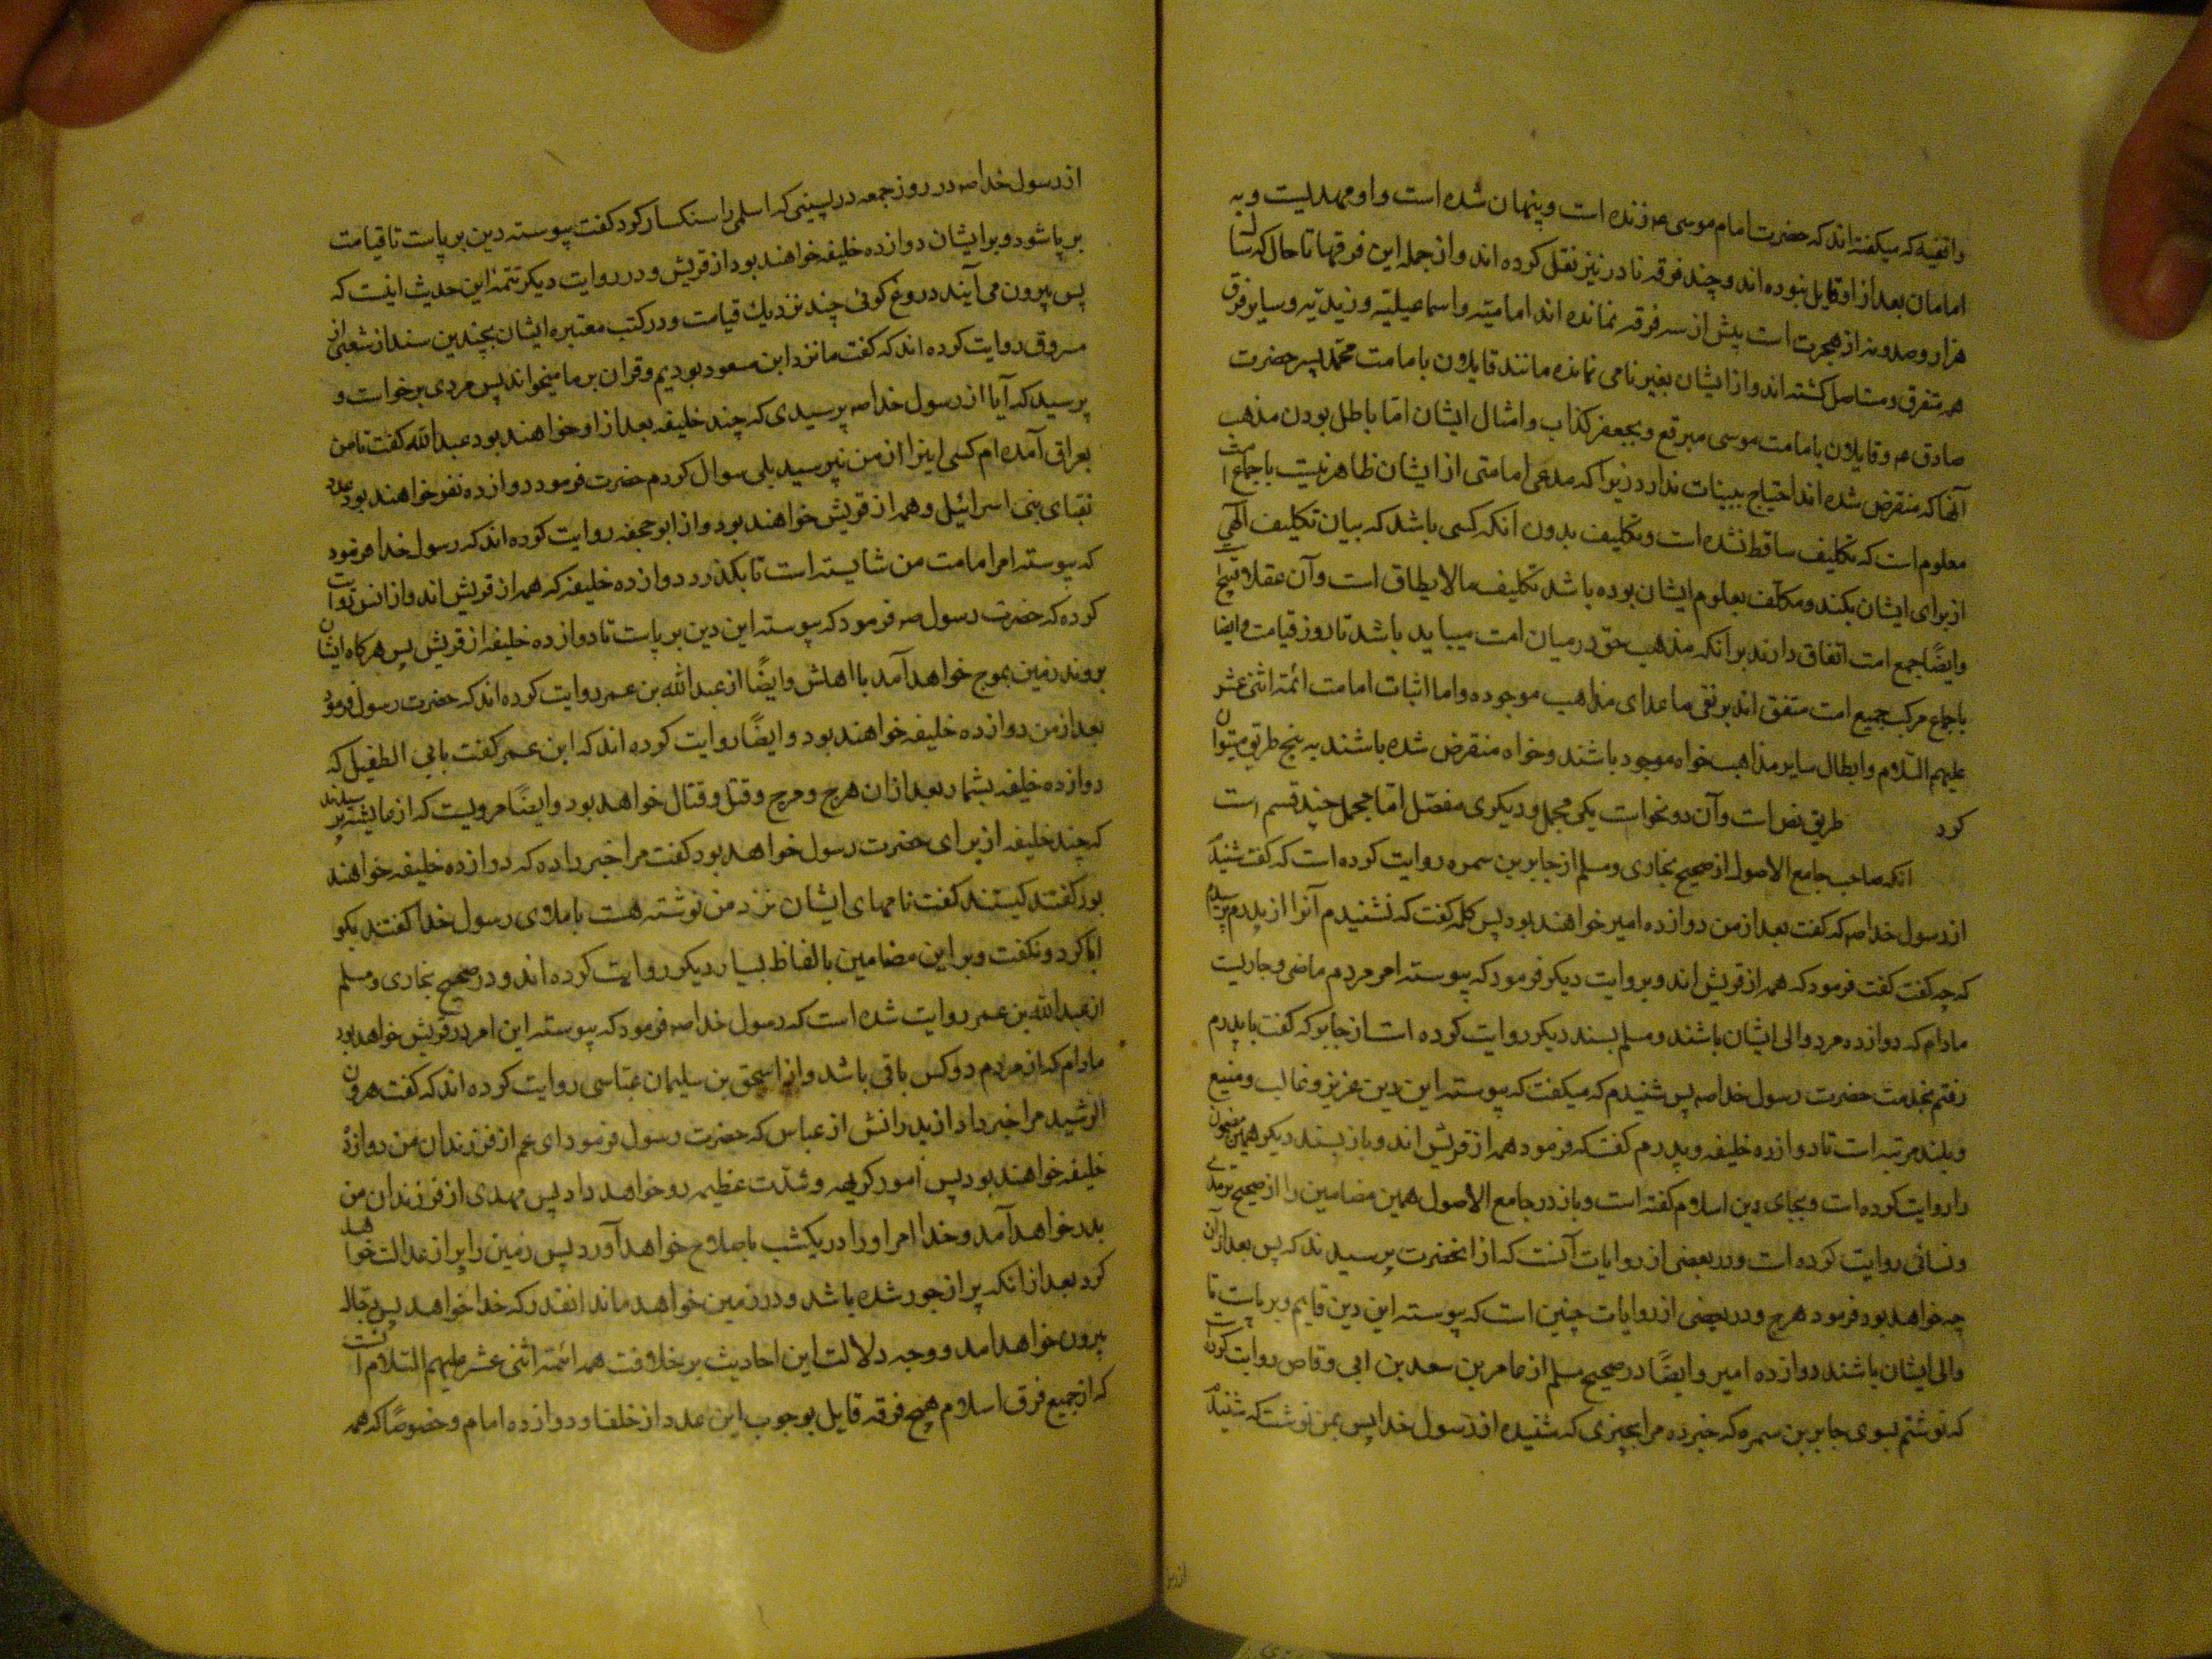 واقفیه که میکفته‌اند که حضرت امام موسی ع زنده است و پنهان شده است و او مهدیست و به
امامان بعد از او قایل نبوده‌اند و چند فرقه نادر نیز نقل کرده‌اند و از جمله این فرقها تا حال که سال
هزار و صد و نه از هجرت است بیش از سه فرقه نمانده‌اند امامیّه و اسماعیلیّه و زیدیّه و سایر فرق
همه متفرق و مستاصل کشته‌اند و از ایشان بغیر نامی نمانده مانند قایلان بامامت محمّد پسر حضرت
صادق ع و قایلان بامامت موسی مبرقع و بجعفر کذاب و امثال ایشان امّا باطل بودن مذهب
آنها که منقرض شده‌اند احتیاج ببینات ندارد زیرا که مدعی امامتی از ایشان ظاهر نیست باجماع امّت
معلوم است که تکلیف ساقط نشده است و تکلیف بدون انکه کسی باشد که بیان تکلیف الهی
از برای ایشان بکند و مکلّف بعلوم ایشان بوده باشد تکلیف ما لا یطاق است و آن عقلا قبیح است
وایضًا جمیع امت اتفاق دارند برانکه مذهب حق در میان امت میباید باشد تا روز قیامت و ایضا
باجماع مرکب جمیع امت متفق‌اند بر نفی ماعدای مذاهب موجوده و اما اثبات امامت ائمّه اثنی عشر
علیهم السّلام و ابطال سایر مذاهب خواه موجود باشند و خواه منقرض شده باشند به پنج طریق میتوان
کرد طریق نص است و آن دو نحو است یکی مجمل و دیکری مفصّل امّا مجمل چند قسم است
انکه صاحب جامع الاصول از صحیح بخاری و مسلم از جابر بن سمره روایت کرده است که کفت شنیدم
از رسول خدا ص که کفت بعد از من دوازده امیر خواهند بود پس کلمه کفت که نشنیدم آنرا از پدرم پرسیدم
که چه کفت کفت فرمود که همه از قریش‌اند و بروایت دیکر فرمود که پیوسته امر مردم ماضی و جاریست
مادام که دوازده مرد والی ایشان باشند و مسلم بسند دیکر روایت کرده است از جابر که کفت با پدرم
رفتم بخدمت حضرت رسول خدا ص پس شنیدم که میکفت که پیوسته این دین عزیز و غالب و منیع
و بلند مرتبه است تا دوازده خلیفه و پدرم کفت که فرمود همه از قریش‌اند و باز بسند دیکر همین مضمون
را روایت کرده است و بجای دین اسلام کفته است و باز در جامع الاصول همین مضامین را از صحیح ترمدی
و نسائی روایت کرده است و در بعضی از روایات آنست که از انحضرت پرسیدند که پس بعد از آن
چه خواهد بود فرمود هرج و در بعضی از روایات چنین است که پیوسته این دین قایم و بر پاست تا
والی ایشان باشند دوازده امیر و ایضًا در صحیح مسلم از عامر بن سعد بن ابی وقاص روایت کرده است
که نوشتم بسوی جابر بن سمره که خبر ده مرا بچیزی که شنیده از رسول خدا پس بمن نوشت که شنیدم
از رسول خدا ص در روز جمعه در پسینی که اسلمی را سنکسار کرد کفت پیوسته دین بر پاست تا قیامت
بر پا شود و بر ایشان دوازده خلیفه خواهند بود از قریش و در روایت دیکر تتمّه این حدیث اینست که
پس بیرون می آیند دروغ کوئی چند نزدیك قیامت و در کتب معتبره ایشان بچندین سند از شعبی از
مسروق روایت کرده‌اند که کفت ما نزد ابن مسعود بودیم و قران بر ما میخواند پس مردی برخواست و
پرسید که آیا از رسول خدا ص پرسیدی که چند خلیفه بعد از او خواهند بود عبدالله کفت تا من
بعراق آمده‌ام کسی اینرا از من نپرسید بلی سوال کردم حضرت فرمود دوازده نفر خواهند بود عدد
نقبای بنی اسرائیل و همه از قریش خواهند بود و از ابو جحفه روایت کرده‌اند که رسول خدا فرمود
که پیوسته امر امامت من شایسته است تا بکذرد دوازده خلیفه که همه از قریش‌اند و از انس روایت
کرده که حضرت رسول ص فرمود که پیوسته این دین بر پاست تا دوازده خلیفه از قریش پس هرکاه ایشان
بروند زمین بموج خواهد آمد با اهلش و ایضًا از عبدالله بن عمر روایت کرده‌اند که حضرت رسول فرمود
بعد از من دوازده خلیفه خواهند بود و ایضًا روایت کرده‌اند که ابن عمر کفت بابی الطفیل که
دوازده خلیفه بشمار بعد از ان هرج و مرج و قتل و قتال خواهد بود و ایضًا مرویست که از عایشه پرسیدند
که چند خلیفه از برای حضرت رسول خواهد بود کفت مرا خبر داده که دوازده خلیفه خواهند
بود کفتند کیستند کفت نامهای ایشان نزد من نوشته هست باملای رسول خدا کفتند بکو
ابا کرد و نکفت و بر این مضامین بالفاظ بسیار دیکر روایت کرده‌اند و در صحیح بخاری و مسلم
از عبدالله بن عمر روایت شده است که رسول خدا ص فرمود که پیوسته این امر در قریش خواهد بود
مادام که از مردم دو کس باقی باشد و از اسحق بن سلیمان عباسی روایت کرده‌اند که کفت هرون
الرشید مرا خبر داد از پدرانش از عباس که حضرت رسول فرمود ای عم از فرزندان من دوازده
خلیفه خواهند بود پس امور کریهه و شدّت عظیمه رو خواهد داد پس مهدی از فرزندان من
بدر خواهد آمد و خدا امر او را در یکشب باصلاح خواهد آورد پس زمین را پر از عدالت خواهد
کرد بعد از انکه پر از جور شده باشد و در زمین خواهد ماند انقدر که خدا خواهد پس دجال
بیرون خواهد امد و وجه دلالت این احادیث بر خلافت همه ائمّه اثنی عشر علیهم السّلام انست
که از جمیع فرق اسلام هیچ فرقه قایل بوجوب این عدد از خلفا و دوازده امام و خصوصًا که همه